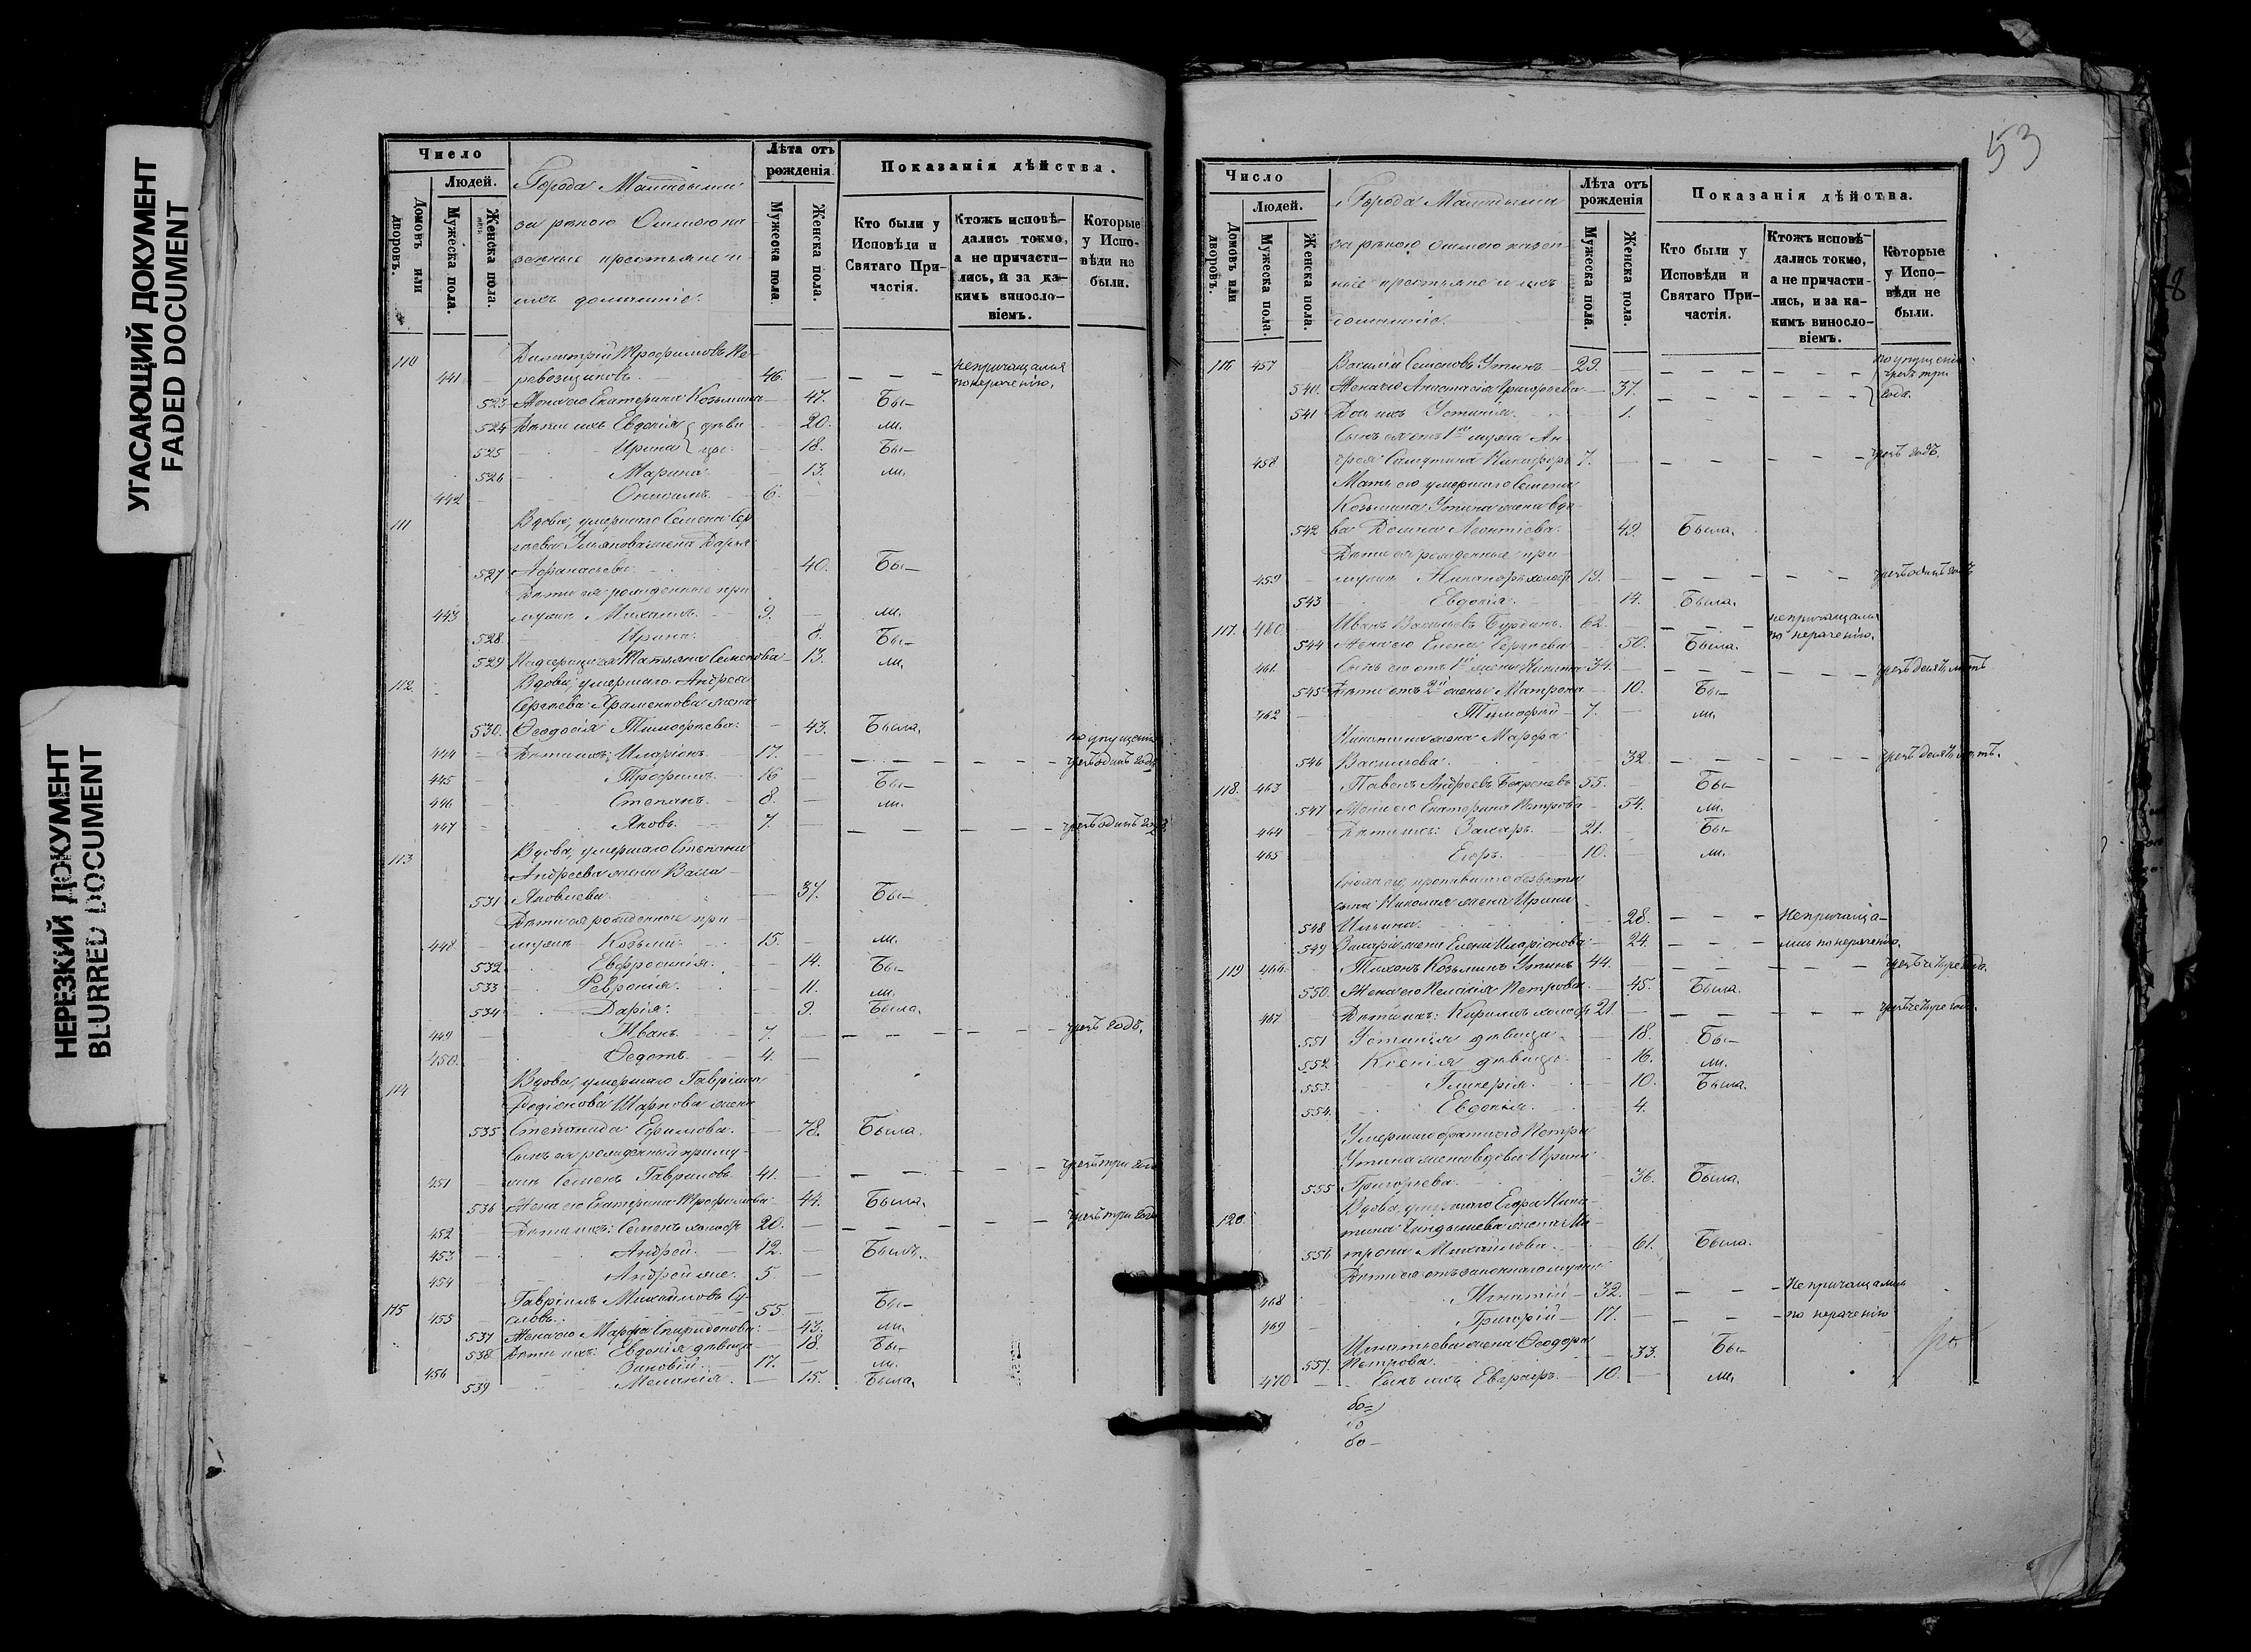 УГАСАЮЩИЙ ДОКУМЕНТ
FADED DOCUMENT
НЕРЕЗКИЙ ДОКУМЕНТ
BLURRED DOCUMENT
Число
Людей.
Домовъ или дворовъ.
Мужеска пола.
Женска пола.
Города
за рѣкою
крестьяне и
ихъ домашніе.
Лѣта отъ рожденія.
Мужеска пола.
Женска пола.
Показанія дѣйства.
Кто были у Исповѣди и Святаго Причастія.
Ктожъ исповѣдались токмо, а не причастились, и за какимъ винословіемъ.
Которые у Исповѣди не были.
110 Димитрій Трофимовъ Пе-
441 ревозчиковъ. 46. непричащался по нераченію.
523 Жена его Екатерина Козьмина 47. Бы-
524 Дѣти ихъ Евдокія дѣви- 20. ли.
525 Ирина цы. 18. Бы-
526 Марина. 13. ли.
442 Онисимъ. 6.
111 Вдова, умершаго Семена Сер-
гѣева жена Дарья
527 Афанасьева. 40. Бы-
Дѣти ея рожденные при
443 мужѣ Михаилъ. 9. ли.
528 Ирина. 8. Бы-
529 Падчерица ея Татьяна Семенова 13. ли.
112 Вдова, умершаго Андрея
Сергѣева Храменкова жена
530. Ѳеодосія Тимофѣева. 43. Была.
444 Дѣти ихъ: Иларіонъ. 17. по упущенію чрезъ одинъ годъ
445 Трофимъ. 16 Бы-
446 Степанъ. 8. ли.
447 Яковъ. 7. чрезъ одинъ годъ
113 Вдова, умершаго Степана
Андреева жена Васса
531 Яковлева. 37. Бы-
Дѣти ея рожденные при
448 мужѣ Козьма. 15. ли.
532 Евфросинія. 14. Бы-
533 Февронія. 11. ли.
534 Дарія. 9. Была.
449 Иванъ. 7. чрезъ годъ.
450. Ѳедотъ. 4.
114 Вдова, умершаго Гавріила
Родіонова жена
535 Степанида Ефимова. 78. Была.
Сынъ ея рожденный при му-
451 жѣ Семенъ Гавриловъ 41. чрезъ три года
536 Жена его Екатерина Трофимова. 44. Была.
452 Дѣти ихъ: Семенъ холостъ 20. чрезъ три года
453 Андрей. 12. Былъ.
454 Андрей же. 5.
115 Гавріилъ Михайловъ Су-
455 словъ. 55. Бы-
537 Жена его Марфа Спиридонова. 43. ли.
538 Дѣти ихъ: Евдокія дѣвица 18. Бы-
456 Зиновій. 17. ли.
539 Меланія. 15. Была.
53
Число
Людей.
Домовъ или дворовъ.
Мужеска пола.
Женска пола.
Города
за рѣкою
крестьяне и ихъ
домашніе.
Лѣта отъ рожденія
Мужеска пола.
Женска пола.
Показанія дѣйства.
Кто были у Исповѣди и Святаго Причастія.
Ктожъ исповѣдались токмо, а не причастились, и за какимъ винословіемъ.
Которые у Исповѣди не были.
116 457 Василій Семеновъ Утинъ 29. по упущенію
540. Жена его Анастасія Григорьева 37. чрезъ три года.
541 Дочь ихъ Устинія. 1.
Сынъ ея отъ 1го мужа Ан-
458 Никифоръ 7. чрезъ годъ.
Мать его умершаго Семена
Козьмина Утина жена вдо-
542 ва Домна Леонтіева. 49. Была.
Дѣти ея рожденные при
459 мужѣ Никаноръ холостъ 19. чрезъ одинъ годъ
543 Евдокія. 14. Была.
117. 460. Иванъ Васильевъ Бурдинъ. 62. непричащался по нераченію.
544 Жена его Елена Сергѣева 50. Была.
461 Сынъ его отъ 1й жены Никита 34. чрезъ девять лѣтъ
545 Дѣти отъ 2й жены Матрона 10. Бы-
462 Тимофей 7. ли.
Никитина жена Марфа
546 Васильева. 32. чрезъ девять лѣтъ.
118. 463 Павелъ Андреевъ 55. Бы-
547 Жена его Екатерина Петрова 54. ли.
464 Дѣти ихъ: Захаръ. 21. Бы-
465 Егоръ. 10. ли.
безвѣсти
сына Николая жена Ирина
548 Ильина. 28. Непричаща-
549 Захарія жена Елена Иларіонова 24. лись по нераченію.
119 466. Тихонъ Козьминъ Утинъ 44. чрезъ четыре года.
550. Жена его Пелагія Петрова. 45. Была.
467 Дѣти ихъ: Кириллъ холостъ 21. чрезъ четыре года.
551 Устинія дѣвица. 18. Бы-
552 Ксенія дѣвица. 16. ли.
553. Гликерія. 10. Была.
554. Евдокія. 4.
Умершаго брата его Петра
Утина жена вдова Ирина
555 Григорьева. 36. Была.
120. Вдова, умершаго Егора Ники-
тина жена Ма-
556 трона Михайлова. 61. Была.
Дѣти ея отъ законнаго мужа
468 Игнатій 32. Непричащались
469 Григорій 17. по нераченію
Игнатьева жена Ѳеодора
557. Петрова. 33. Бы-
470 Сынъ ихъ Евграфъ. 10. ли.
60
60
60